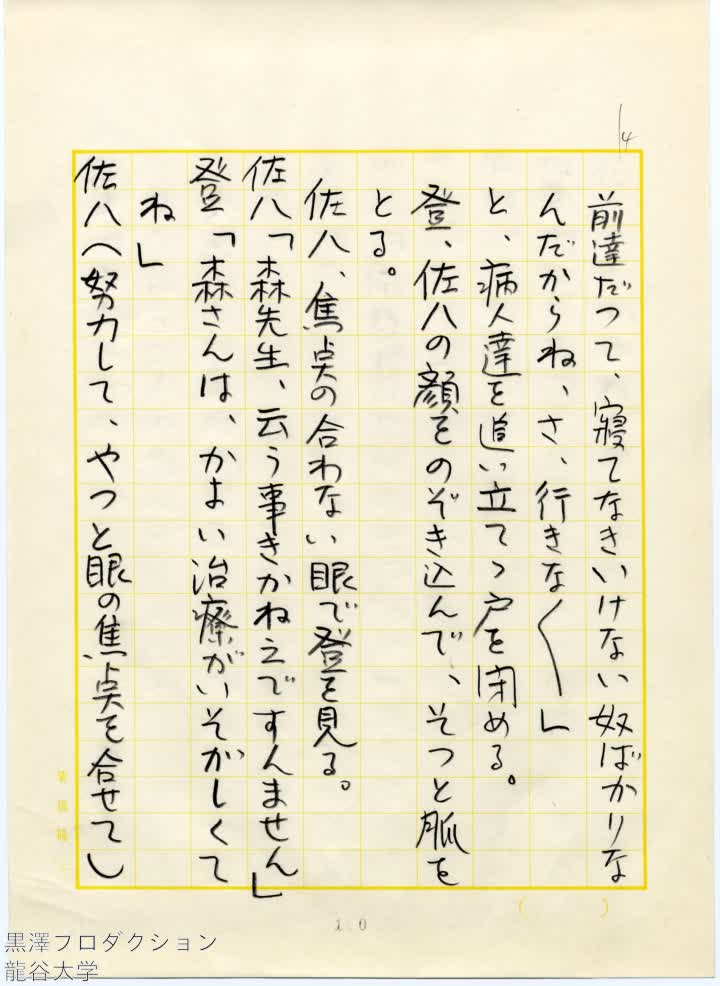 14
前達だつて、寝てなきいけない奴ばかりな
んだからね、さ、行きな〱」
と、病人達を追い立てゝ戸を閉める。
登、佐八の顔をのぞき込んで、そつと脈を
とる。
佐八、焦点の合わない眼で登を見る。
佐八「森先生、云う事きかねえですんません」
登「森さんは、かよい治療がいそがしくて
ね」
佐八へ努力して、やつと眼の焦点を合せて）
10
黒澤プロダクション
龍谷大学